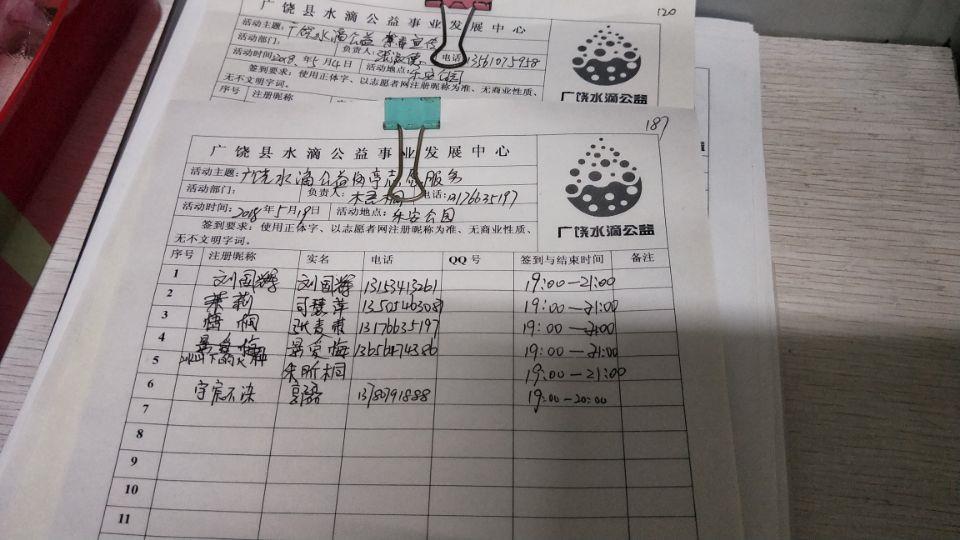 120
广饶县水滴公益事业发展中心
活动主题:广饶水滴公益 禁毒宣传
活动部门: 负责人: 电话:13561075958
活动时间:2018年5月4日 活动地点:乐安公园
签到要求:使用正体字、以志愿者网注册昵称为准、无商业性质、
无不文明字词。
序号 注册昵称
广饶水滴公益
187
广饶县水滴公益事业发展中心
活动主题:广饶水滴公益岗亭志愿服务
活动部门: 负责人: 电话:13176635197
活动时间:2018年5月19日 活动地点:乐安公园
签到要求:使用正体字、以志愿者网注册昵称为准、无商业性质、
无不文明字词。
广饶水滴公益
序号 注册昵称 实名 电话 QQ号 签到与结束时间 备注
1 刘国辉 刘国辉 13153413261 19:00—21:00
2 茉莉 19:00—21:00
3 梧桐 13176635197 19:00—21:00
4 景爱梅 景爱梅 19:00—21:00
5 19:00—21:00
6 宁宸不决 19:00—20:00
7
8
9
10
11